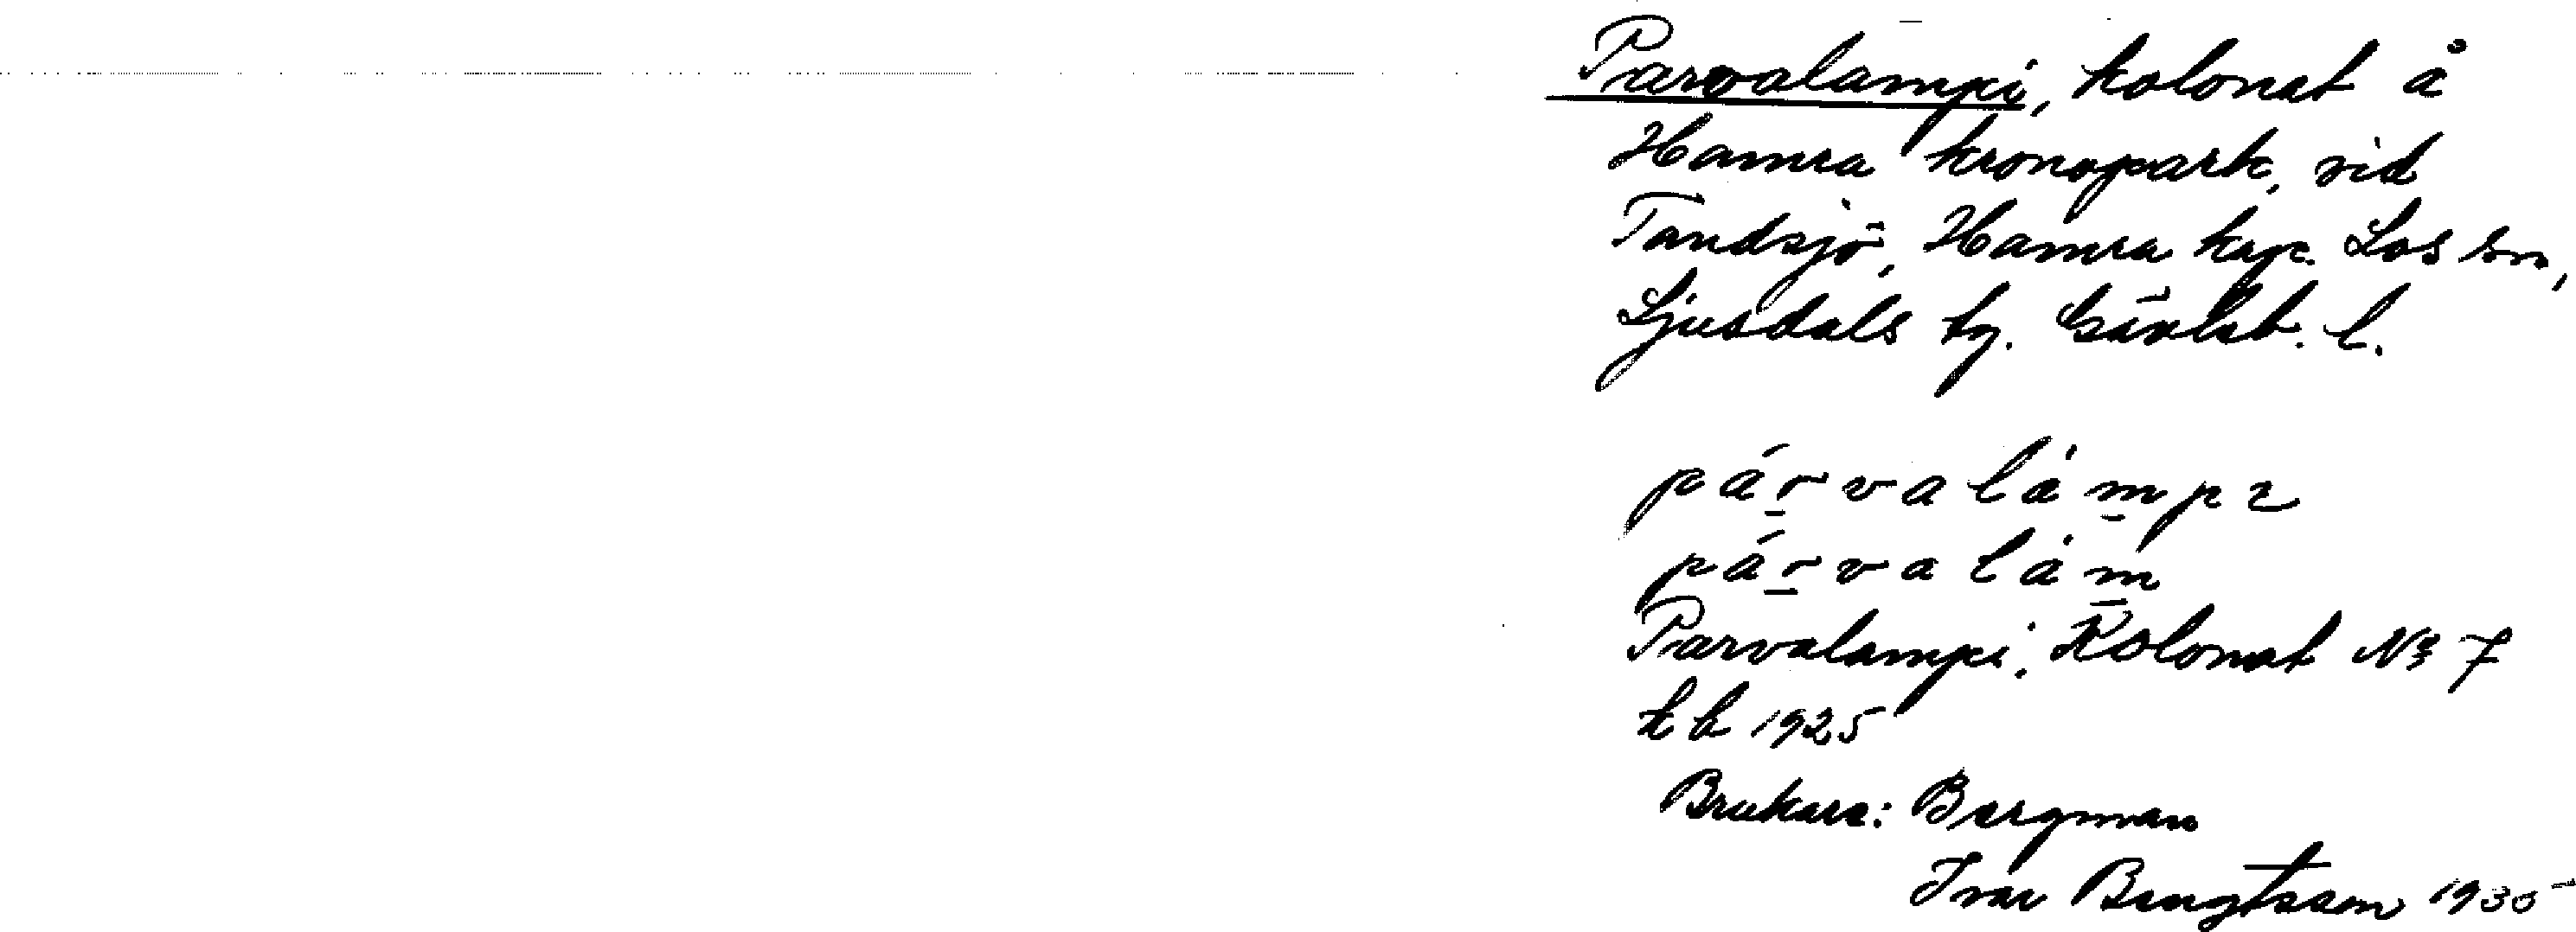 Parvalampi, kolonat å
Hamra kronopark, vid
Tandsjö, Hamra kap. Los sn,
Ljusdals tg. Gävleb. l.
párvalámpɩ
párvalám
Parvalampi, Kolonat No 7
kb 1925
Brukare: Bergman
Ivar Bengtsson 1935